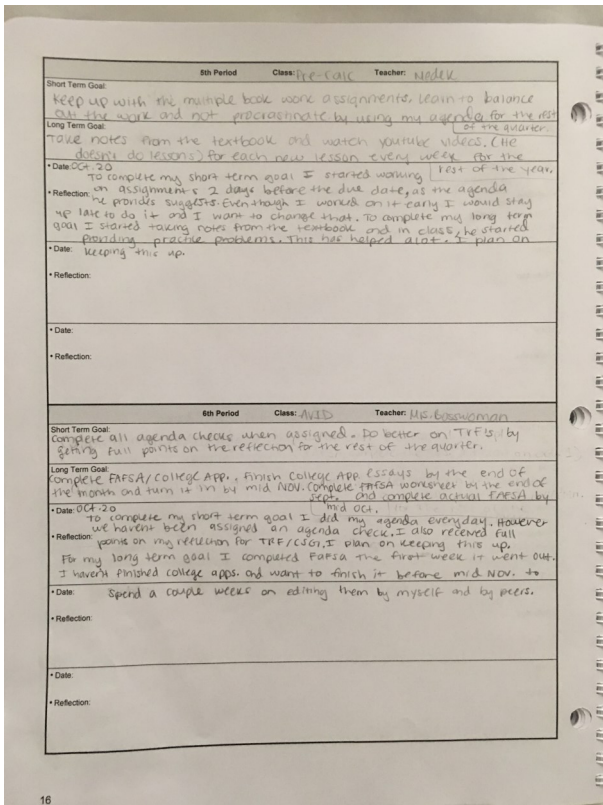 5th Period Class: Pre-Calc Teacher: Nedek
Short Term Goal:
Keep up with the multiple book work assignments. Learn to balance
out the work and not procrastinate by using my agenda for the rest
of the quarter.
Long Term Goal:
Take notes from the textbook and watch youtube videos. (He
doesn't do lessons) for each new lesson every week for the
rest of the year.
• Date: Oct. 20
To complete my short term goal I started working
• Reflection: on assignments 2 days before the due date, as the agenda
he provides suggests. Even though I worked on it early I would stay
up late to do it and I want to change that. To complete my long term
goal I started taking notes from the textbook and in class, he started
providing practice problems. This has helped alot. I plan on
• Date: keeping this up.
• Reflection:
• Date:
• Reflection:
6th Period Class: AVID Teacher: Ms. Bosswoman
Short Term Goal:
Complete all agenda checks when assigned. Do better on TRF's, by
getting full points on the reflection for the rest of the quarter.
Long Term Goal:
Complete FAFSA/College APP. Finish College App. Essays by the end of
the month and turn it in by mid NOV. Complete FAFSA worksheet by the end of
Sept. and complete actual FAFSA by
mid Oct.
• Date: Oct. 20
To complete my short term goal I did my agenda everyday. However
we havent been assigned an agenda check. I also received full
• Reflection: points on my reflection for TRF/CSG. I plan on keeping this up.
For my long term goal I completed Fafsa the first week it went out.
I haven't finished college apps. and want to finish it before mid NOV. to
• Date: Spend a couple weeks on editing them by myself and by peers.
• Reflection:
• Date:
• Reflection:
16